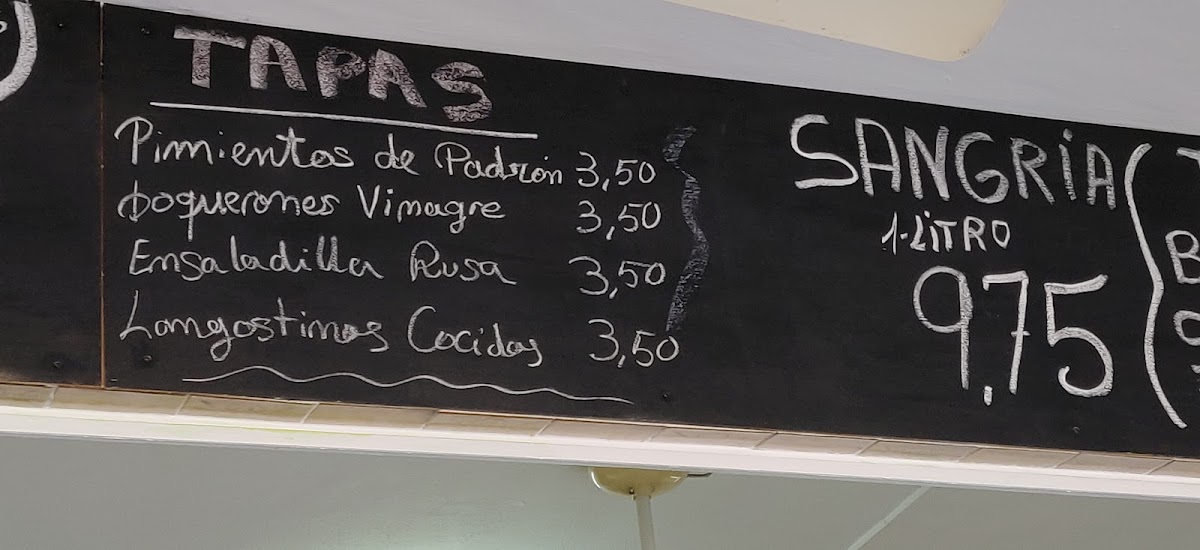 TAPAS
Pimientos de Padrón 3,50
boquerones Vinagre 3,50
Ensaladilla Rusa 3,50
Langostinos Cocidos 3,50
SANGRíA
1-LiTRO
9,75